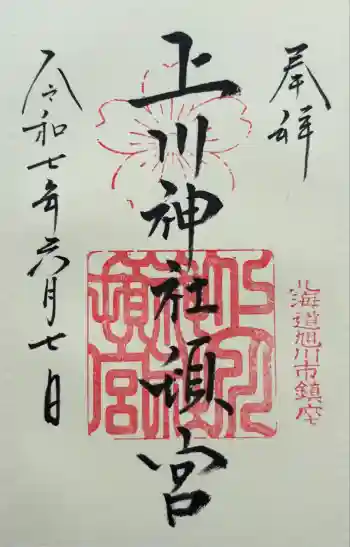 奉拝
北海道旭川市鎮座
上川神社頓宮
令和七年六月七日